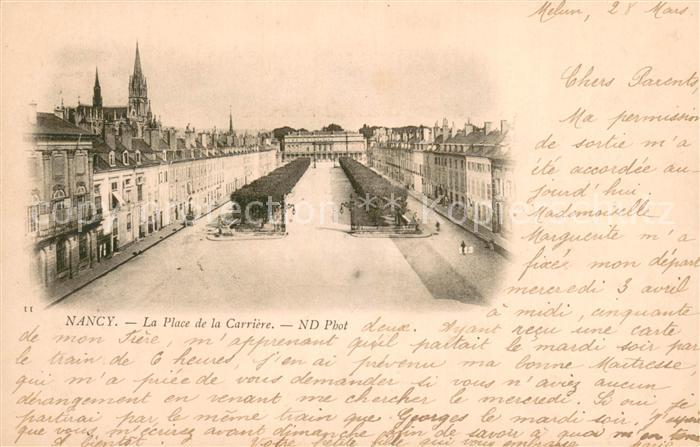 Melun, 28 Mars.
Chers Parents,
Ma permission
de sortie m'a
été accordée au-
jourd'hui.
Mademoiselle
Marguerite m'a
fixé mon départ
mercredi 3 avril
à midi, cinquante
11
NANCY. — La Place de la Carrière. — ND Phot
deux. Ayant reçu une carte
de mon Frère, m'apprenant qu'il partait le mardi soir par
le train de 6 heures, j'en ai prévenu ma bonne Maîtresse,
qui m'a priée de vous demander si vous n'aviez aucun
dérangement en venant me chercher le mercredi. Si oui je
partirai par le même train que Georges le mardi soir.
que vous m'écrirez avant dimanche afin de savoir à quoi m'en
bientôt. Votre petite fille qui vous embrasse
© www.ansichtskartenexpress